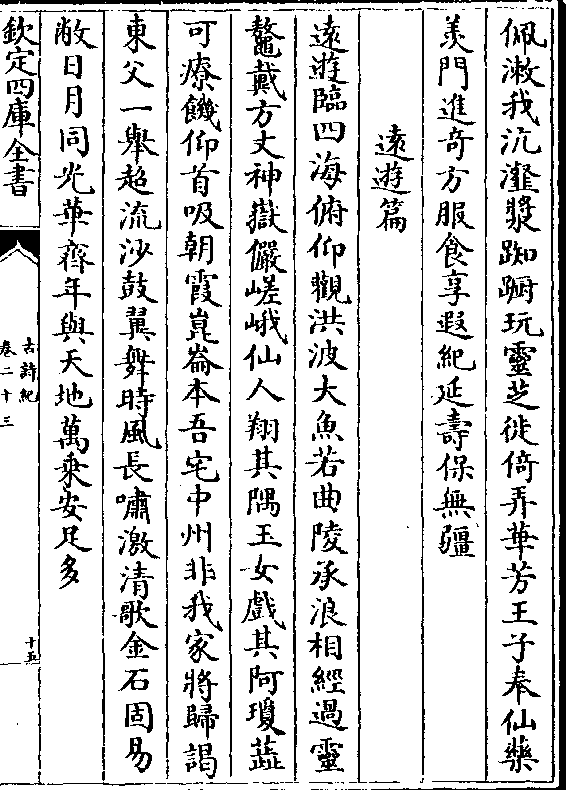 佩漱我沆瀣漿踟蹰玩靈芝徙倚弄華芳王子奉仙藥
羡門進奇方服食享遐紀延壽保無疆
逺遊篇
逺遊臨四海俯仰觀洪波大魚若曲陵承浪相經過靈
鼇戴方丈神嶽儼嵯峨仙人翔其隅玉女戲其阿瓊蘂
可療饑仰首吸朝霞崑崙本吾宅中州非我家將歸謁
東父一舉超流沙鼓翼舞時風長嘯激清歌金石固易
敝日月同光華齊年與天地萬乘安足多
欽定四庫全書
古詩紀
卷二十三
十五